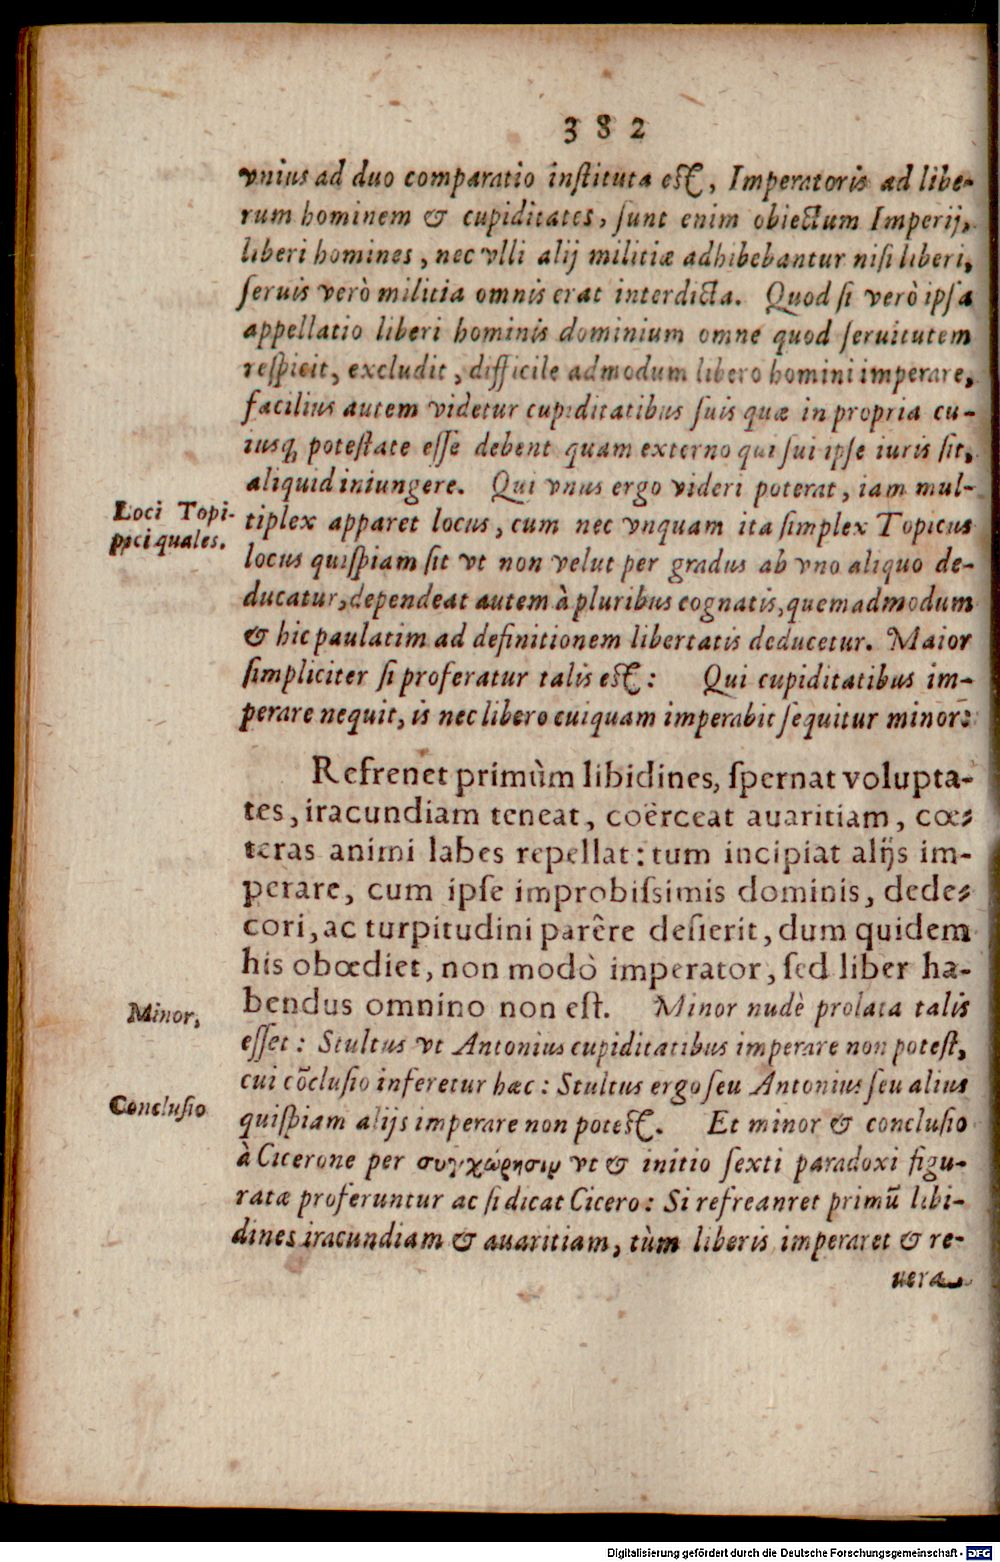 382
vnius ad duo comparatio instituta est, Imperatoris ad libe-
rum hominem & cupiditates, sunt enim obiectum Imperij,
liberi homines, nec vlli alij militiæ adhibebantur nisi liberi,
seruis verò militia omnis erat interdicta. Quod si verò ipsa
appellatio liberi hominis dominium omne quod seruitutem
respicit, excludit, difficile admodum libero homini imperare,
facilius autem videtur cupiditatibus suis quæ in propria cu-
iusq́ potestate esse debent quam externo qui sui ipse iuris sit,
aliquid iniungere. Qui vnus ergo videri poterat, iam mul-
Loci Topi-
ppci quales.
tiplex apparet locus, cum nec vnquam ita simplex Topicus
locus quispiam sit vt non velut per gradus ab vno aliquo de-
ducatur, dependeat autem à pluribus cognatis, quemadmodum
& hic paulatim ad definitionem libertatis deducetur. Maior
simpliciter si proferatur talis est: Qui cupiditatibus im-
perare nequit, is nec libero cuiquam imperabit sequitur minor:
Refrenet primùm libidines, spernat volupta-
tes, iracundiam teneat, coërceat avaritiam, cœ-
teras animi labes repellat: tum incipiat alijs im-
perare, cum ipse improbissimis dominis, dede-
cori, ac turpitudini parêre desierit, dum quidem
his obœdiet, non modò imperator, sed liber ha-
bendus omnino non est. Minor nudè prolata talis
Minor,
esset: Stultus vt Antonius cupiditatibus imperare non potest,
cui cōclusio inferetur hæc: Stultus ergo seu Antonius seu alius
Conclusio
quispiam alijs imperare non potest. Et minor & conclusio
à Cicerone per συγχώρησιν vt & initio sexti paradoxi figu-
ratæ proferuntur ac si dicat Cicero: Si refreanret primū libi-
dines iracundiam & auaritiam, tùm liberis imperaret & re-
uera
Digitalisierung gefördert durch die Deutsche Forschungsgemeinschaft - DFG